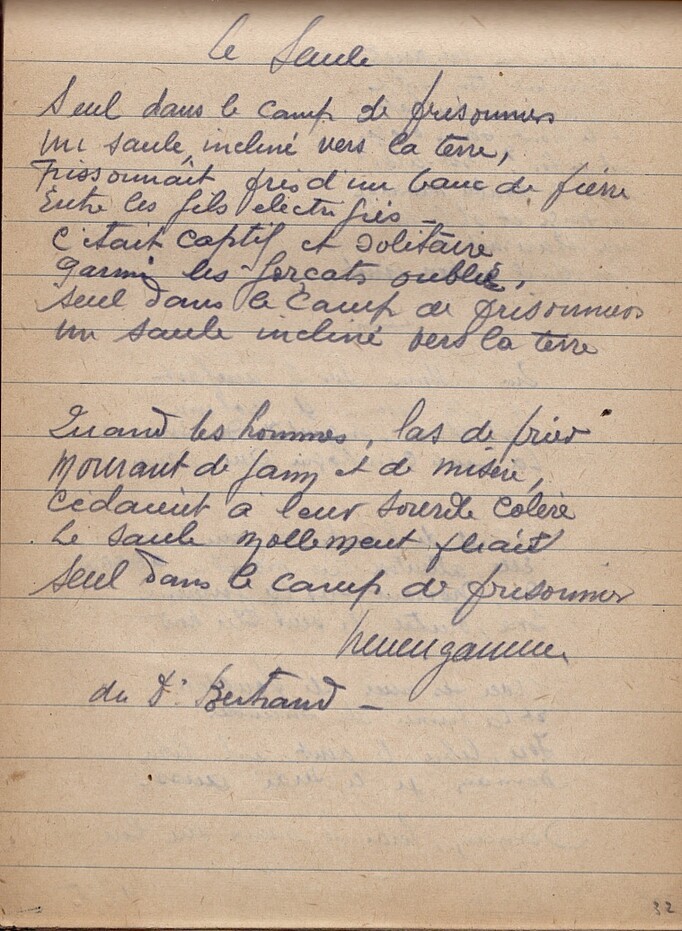 Le Saule
Seul dans le camp de prisonniers
un saule, incliné vers la terre,
Frissonnait près d'un banc de pierre
Entre les fils électrifiés _
C'était captif et solitaire
Parmi les forçats oublié,
Seul dans le camp de prisonniers
un saule incliné vers la terre
Quand les hommes, las de prier
Mourant de faim et de misère,
Cédaient à leur sourde colère
Le saule mollement pliait
Seul dans le camp de prisonnier
Neuengamme
du Dr Bertrand _
32